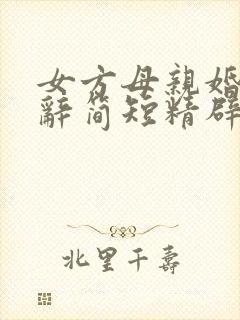 女方母親婚
辭简短精辟
北里千壽